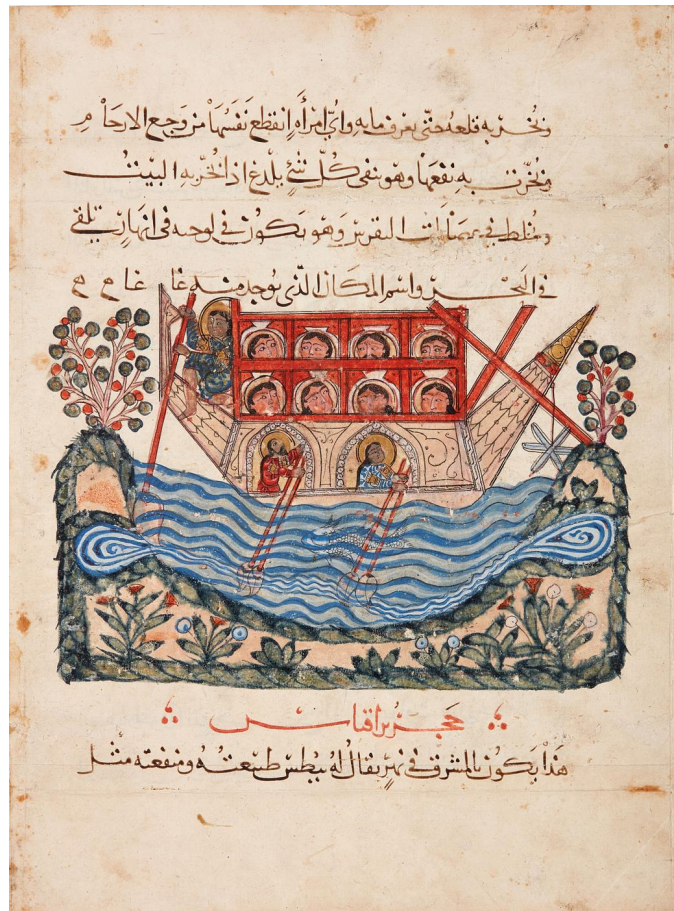 به قلعه حتى يعرف ما به وائ امرأه انقطع نفسها من وجع الارحام
به نفعها وهو ينفى كل شئ يلدغ اذا بخر به البيت
ويخلط فى النقرس وهو يكون فى فى انهار تلقى
فى البحر واسم المكان الذى يوجد منه غاغا
حجر
هذا يكون بالمشرق فى نهر يقال له طبيعته ومنفعته مثل